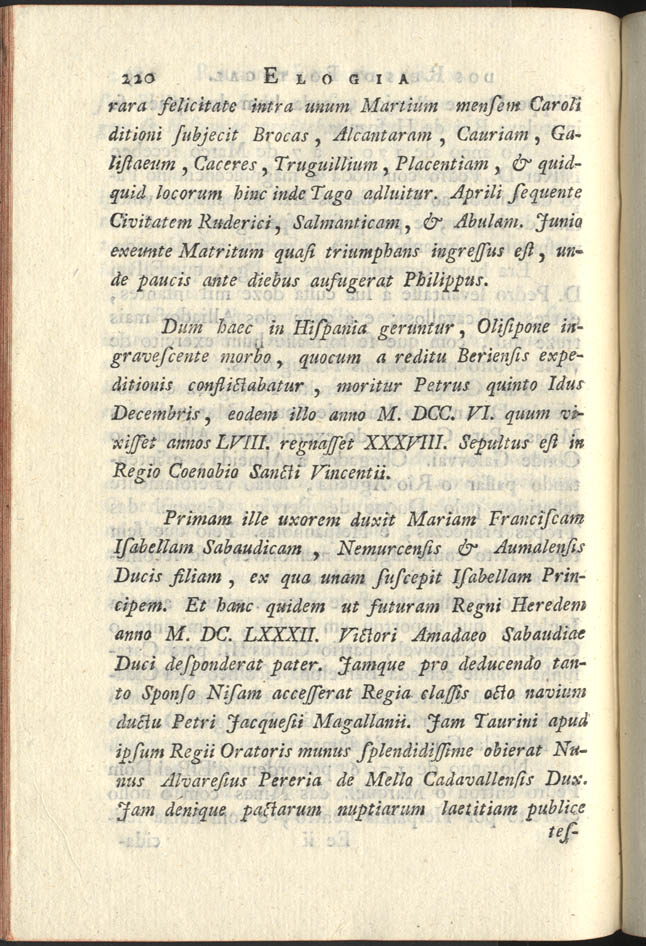 220 ELOGIA
rara felicitate intra unum Martium menſem Caroli
ditioni ſubjecit Brocas, Alcantaram, Cauriam, Ga-
liſtaeum, Caceres, Truguillium, Placentiam, & quid-
quid locorum hinc inde Tago adluitur. Aprili ſequente
Civitatem Ruderici, Salmanticam, & Abulam. Junio
exeunte Matritum quaſi triumphans ingreſſus eſt, un-
de paucis ante diebus aufugerat Philippus.
Dum haec in Hiſpania geruntur, Oliſipone in-
graveſcente morbo, quocum a reditu Berienſis expe-
ditionis conflictabatur, moritur Petrus quinto Idus
Decembris, eodem illo anno M. DCC. VI. quum vi-
xiſſet annos LVIII. regnaſſet XXXVIII. Sepultus eſt in
Regio Coenobio Sancti Vincentii.
Primam ille uxorem duxit Mariam Franciſcam
Iſabellam Sabaudicam, Nemurcenſis & Aumalenſis
Ducis filiam, ex qua unam ſuſcepit Iſabellam Prin-
cipem. Et hanc quidem ut futuram Regni Heredem
anno M. DC. LXXXII. Victori Amadaeo Sabaudiae
Duci deſponderat pater. Jamque pro deducendo tan-
to Sponſo Niſam acceſſerat Regia claſſis octo navium
ductu Petri Jacqueſii Magallanii. Jam Taurini apud
ipſum Regii Oratoris munus ſplendidiſſime obierat Nu-
nus Alvareſius Pereria de Mello Cadavallenſis Dux.
Jam denique pactarum nuptiarum laetitiam publice
teſ-